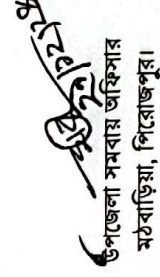 উপজেলা সমবায় অফিসার
মঠবাড়িয়া, পিরোজপুর।